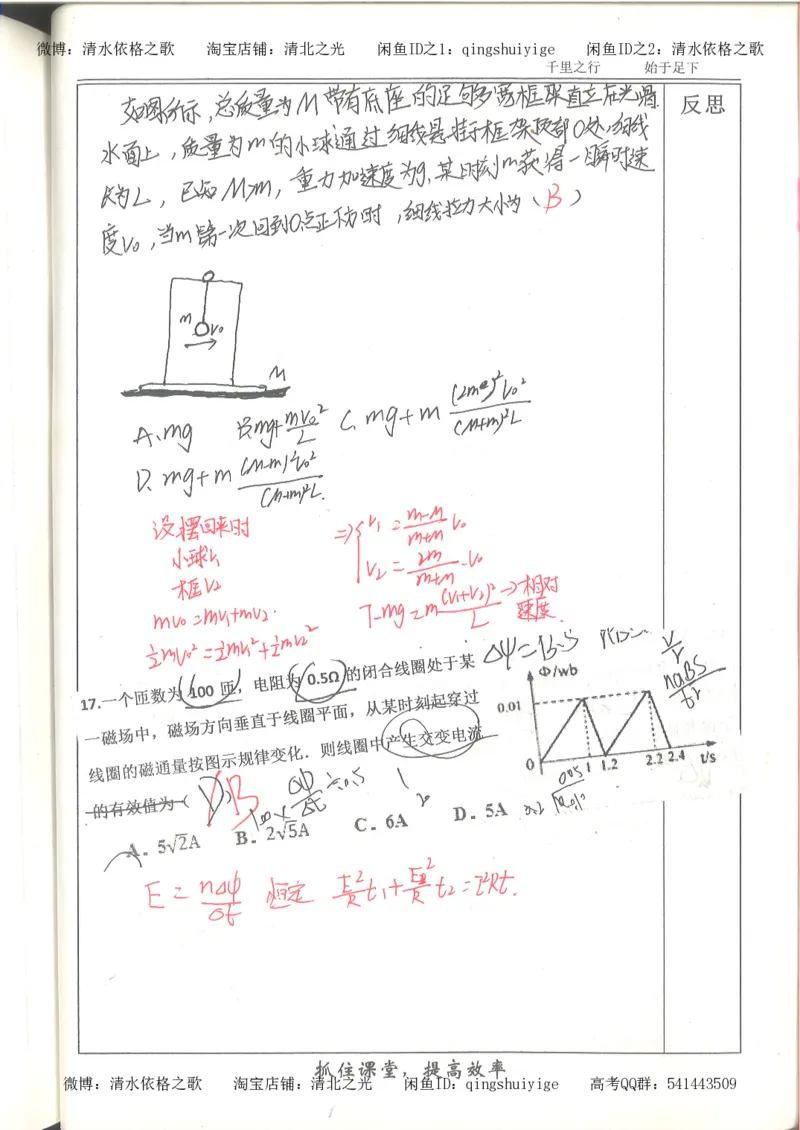 微博：清水依格之歌 淘宝店铺：清北之光 闲鱼ID之1：qingshuiyige 闲鱼ID之2：清水依格之歌
千里之行 始于足下
反思
如图所示，总质量为M带有底座的足够宽框架直立在光滑
水面上，质量为m的小球通过细线悬挂于框架顶部O处，细线
长为L，已知M>m，重力加速度为g，某时刻m获得一瞬时速
度v₀，当m第一次回到O点正下方时，细线拉力大小为（B）
m v₀
M
A、mg B、mg+mv₀²/L C、mg+m (2m)²v₀²/(M+m)²L
D、mg+m (M-m)²v₀²/(M+m)²L
设摆回来时
小球v₁
框v₂
mv₀=mv₁+mv₂.
½mv₀²=½mv₁²+½mv₂²
⇒{v₁=(m-M)/(m+m) v₀
v₂=2m/(m+m)·v₀
T-mg=m(v₁+v₂)²/L →相对速度.
17.一个匝数为 100 匝，电阻为 0.5Ω 的闭合线圈处于某
一磁场中，磁场方向垂直于线圈平面，从某时刻起穿过
线圈的磁通量按图示规律变化．则线圈中产生交变电流
的有效值为（ D ）B
A．5√2A B．2√5A C．6A D．5A
Δψ=B·S
naBS
Φ/wb
0.01
0 1 1.2 2.2 2.4 t/s
E=nΔφ/Δt 恒定 E²/R t₁+E²/R t₂=I²Rt.
抓住课堂，提高效率
微博：清水依格之歌 淘宝店铺：清北之光 闲鱼ID：qingshuiyige 高考QQ群：541443509